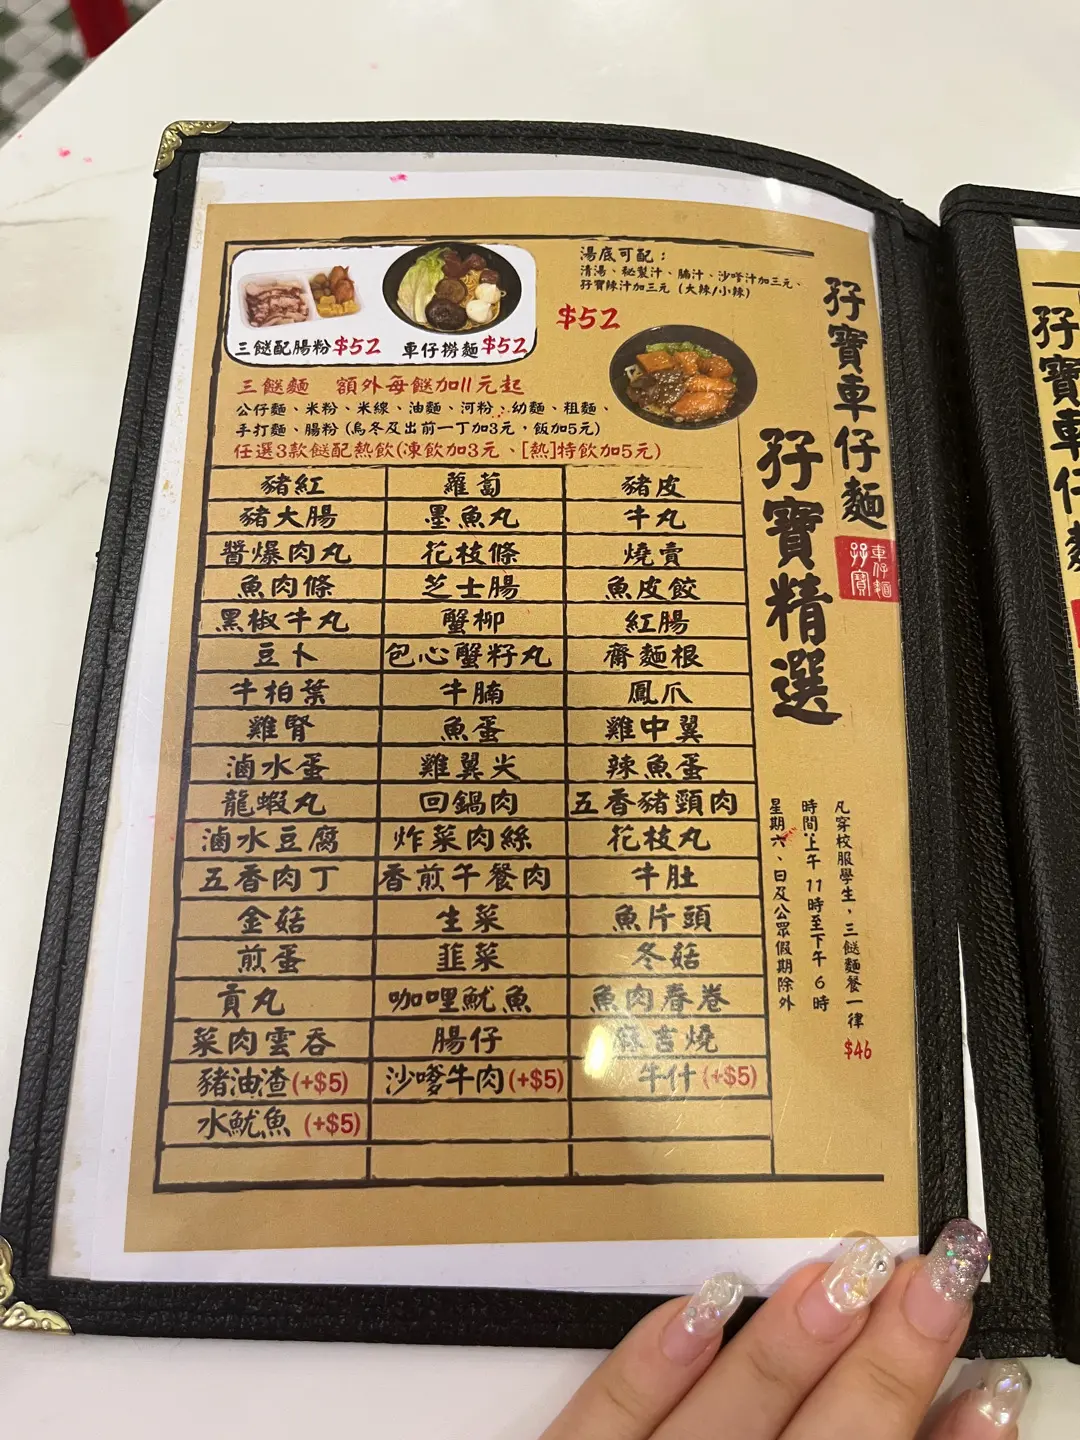 湯底可配：
清湯、秘製汁、腩汁、沙嗲汁加三元、
孖寶辣汁加三元（大辣/小辣）
$52
三餸配腸粉$52 車仔撈麵$52
三餸麵 額外每餸加11元起
公仔麵、米粉、米線、油麵、河粉、幼麵、粗麵、
手打麵、腸粉 (烏冬及出前一丁加3元，飯加5元)
任選3款餸配熱飲(凍飲加3元、[熱]特飲加5元)
豬紅 蘿蔔 豬皮
豬大腸 墨魚丸 牛丸
醬爆肉丸 花枝條 燒賣
魚肉條 芝士腸 魚皮餃
黑椒牛丸 蟹柳 紅腸
豆卜 包心蟹籽丸 齋麵根
牛柏葉 牛腩 鳳爪
雞腎 魚蛋 雞中翼
滷水蛋 雞翼尖 辣魚蛋
龍蝦丸 回鍋肉 五香豬頸肉
滷水豆腐 炸菜肉絲 花枝丸
五香肉丁 香煎午餐肉 牛肚
金菇 生菜 魚片頭
煎蛋 韮菜 冬菇
貢丸 咖哩魷魚 魚肉春卷
菜肉雲吞 腸仔 吉燒
豬油渣(+$5) 沙嗲牛肉(+$5) 牛什(+$5)
水魷魚 (+$5)
孖寶車仔麵
車仔麵
孖寶
孖寶精選
凡穿校服學生，三餸麵餐一律 $46
時間：上午 11 時至下午 6 時
星期六、日及公眾假期除外
孖寶車仔麵